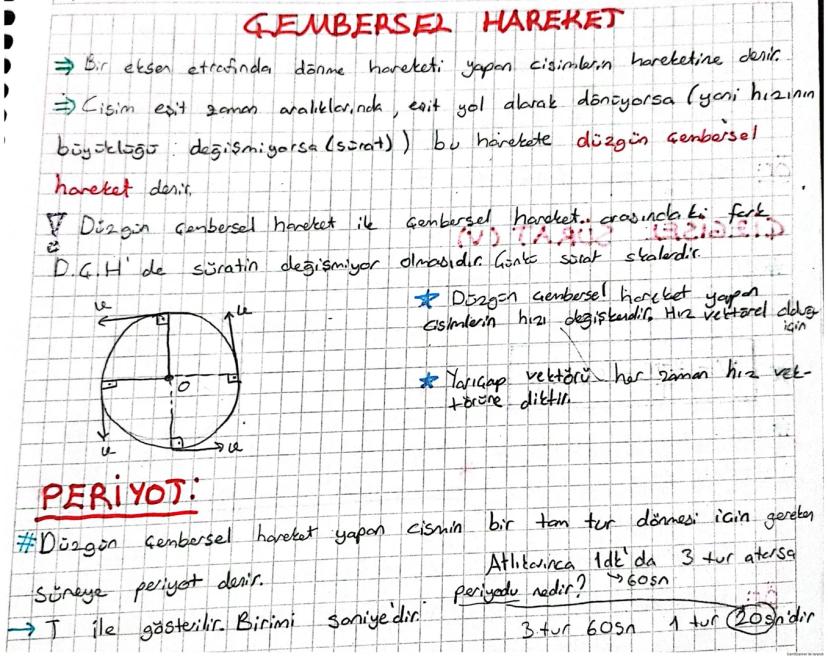 ÇEMBERSEL HAREKET
⇒ Bir eksen etrafında dönme hareketi yapan cisimlerin hareketine denir.
⇒ Cisim eşit zaman aralıklarında, eşit yol alarak dönüyorsa (yani hızının
büyüklüğü : değişmiyorsa (sürat)) bu harekete düzgün çembersel
hareket denir.
Düzgün çembersel hareket ile çembersel hareket arasındaki fark
D.Ç.H'de süratin değişmiyor olmasıdır. Çünkü sürat skalerdir.
★ Düzgün çembersel hareket yapan
cisimlerin hızı değişkendir. Hız vektörel olduğu
için
★ Yarıçap vektörü her zaman hız vek-
törüne diktir.
v
v
O
v
v
PERİYOT:
# Düzgün çembersel hareket yapan cismin bir tam tur dönmesi için gereken
süreye periyot denir.
Atlıkarınca 1dk'da 3 tur atarsa
periyodu nedir? → 60sn
→ T ile gösterilir. Birimi saniye'dir.
3 tur 60sn 1 tur 20sn'dir